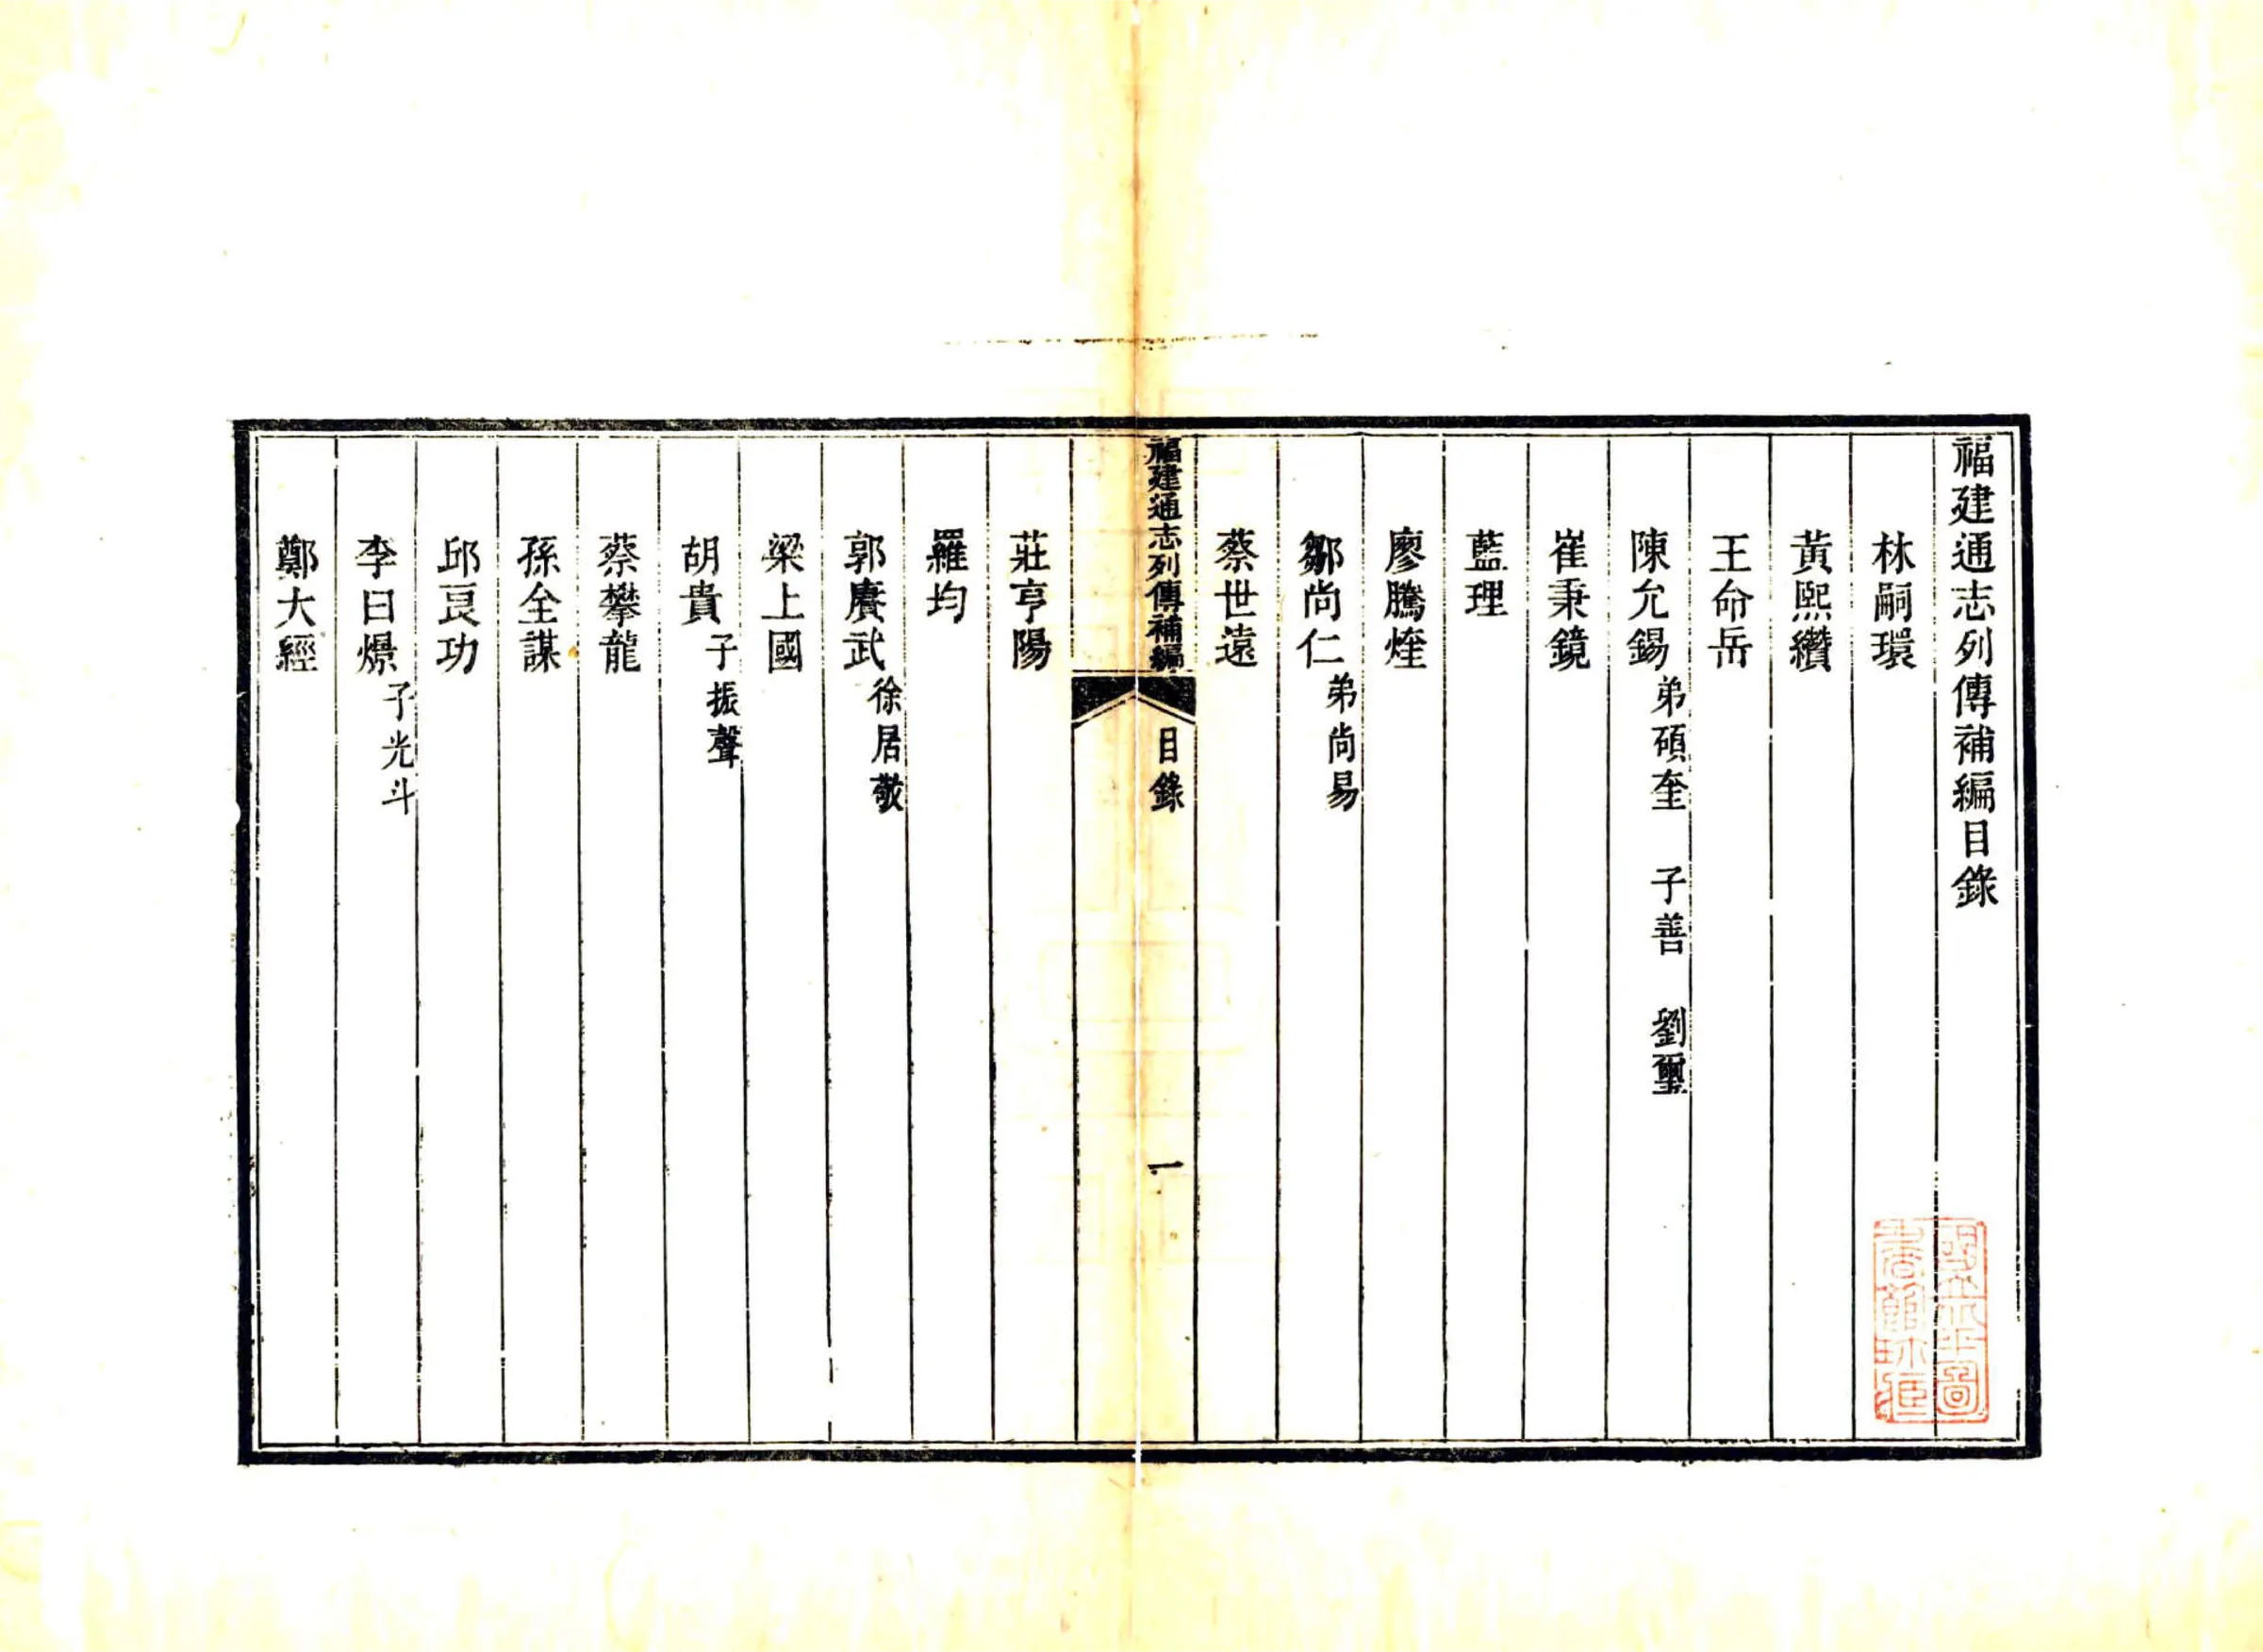 福建通志列傳補編目錄
林嗣環
黃熙纘
王命岳
陳允錫 弟碩奎 子善 劉璽
崔秉鏡
藍理
廖騰煃
鄒尚仁 弟尚易
蔡世遠
福建通志列傳補編 目錄 一
莊亨陽
羅均
郭賡武 徐居敬
梁上國
胡貴 子振聲
蔡攀龍
孫全謀
邱良功
李曰燝 子光斗
鄭大經
國立北平圖
書館收藏